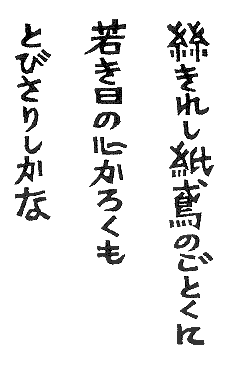 絲きれし紙鳶のごとくに
若き日の心かろくも
とびさりしかな